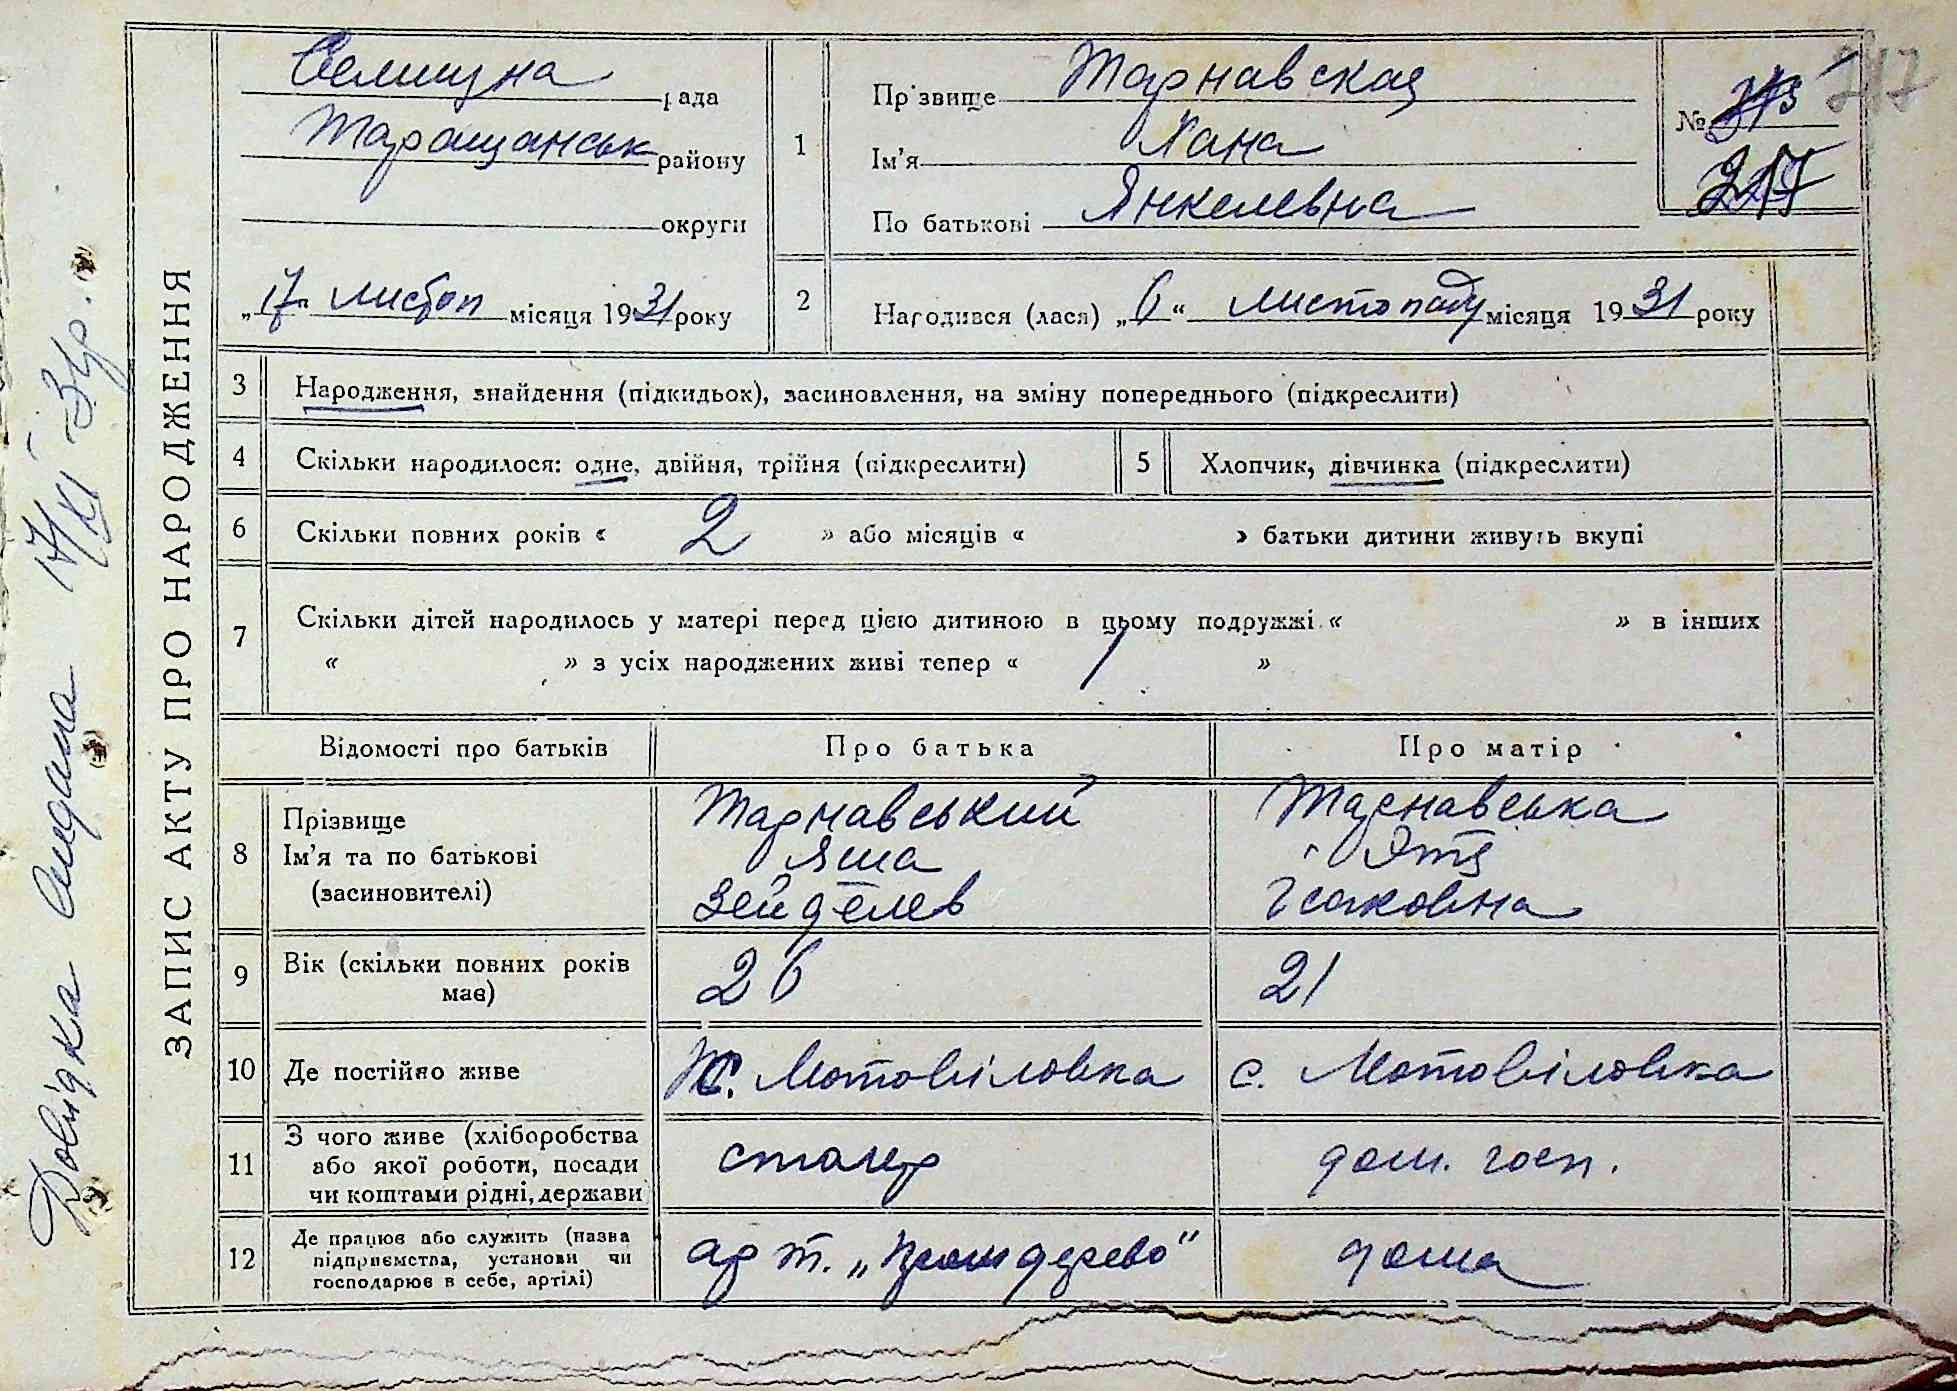 Довідка видана 17/XI-31р.
ЗАПИС АКТУ ПРО НАРОДЖЕННЯ
Селищна рада
Таращанськ району
округи
„17" листоп місяця 1931 року
1
Прізвище Тарнавская
Ім'я Хана
По батькові Янкелевна
№
217
2
Народився (лася) „6" листопаду місяця 1931 року
3 Народження, знайдення (підкидьок), засиновлення, на зміну попереднього (підкреслити)
4 Скільки народилося: одне, двійня, трійня (підкреслити)
5 Хлопчик, дівчинка (підкреслити)
6 Скільки повних років « 2 » або місяців « » батьки дитини живуть вкупі
7 Скільки дітей народилось у матері перед цією дитиною в цьому подружжі « » в інших
« » з усіх народжених живі тепер « »
Відомості про батьків Про батька Про матір
8
Прізвище Тарнавський Тарнавська
Ім'я та по батькові Яша
(засиновителі) Зейделев Ісаковна
9 Вік (скільки повних років має) 26 21
10 Де постійно живе с. Мотовіловка с. Мотовіловка
11 З чого живе (хліборобства
або якої роботи, посади столяр дом. госп.
чи коштами рідні, держави
12 Де працює або служить (назва
підприємства, установи чи арт. „Промдерево" дома
господарює в себе, артілі)